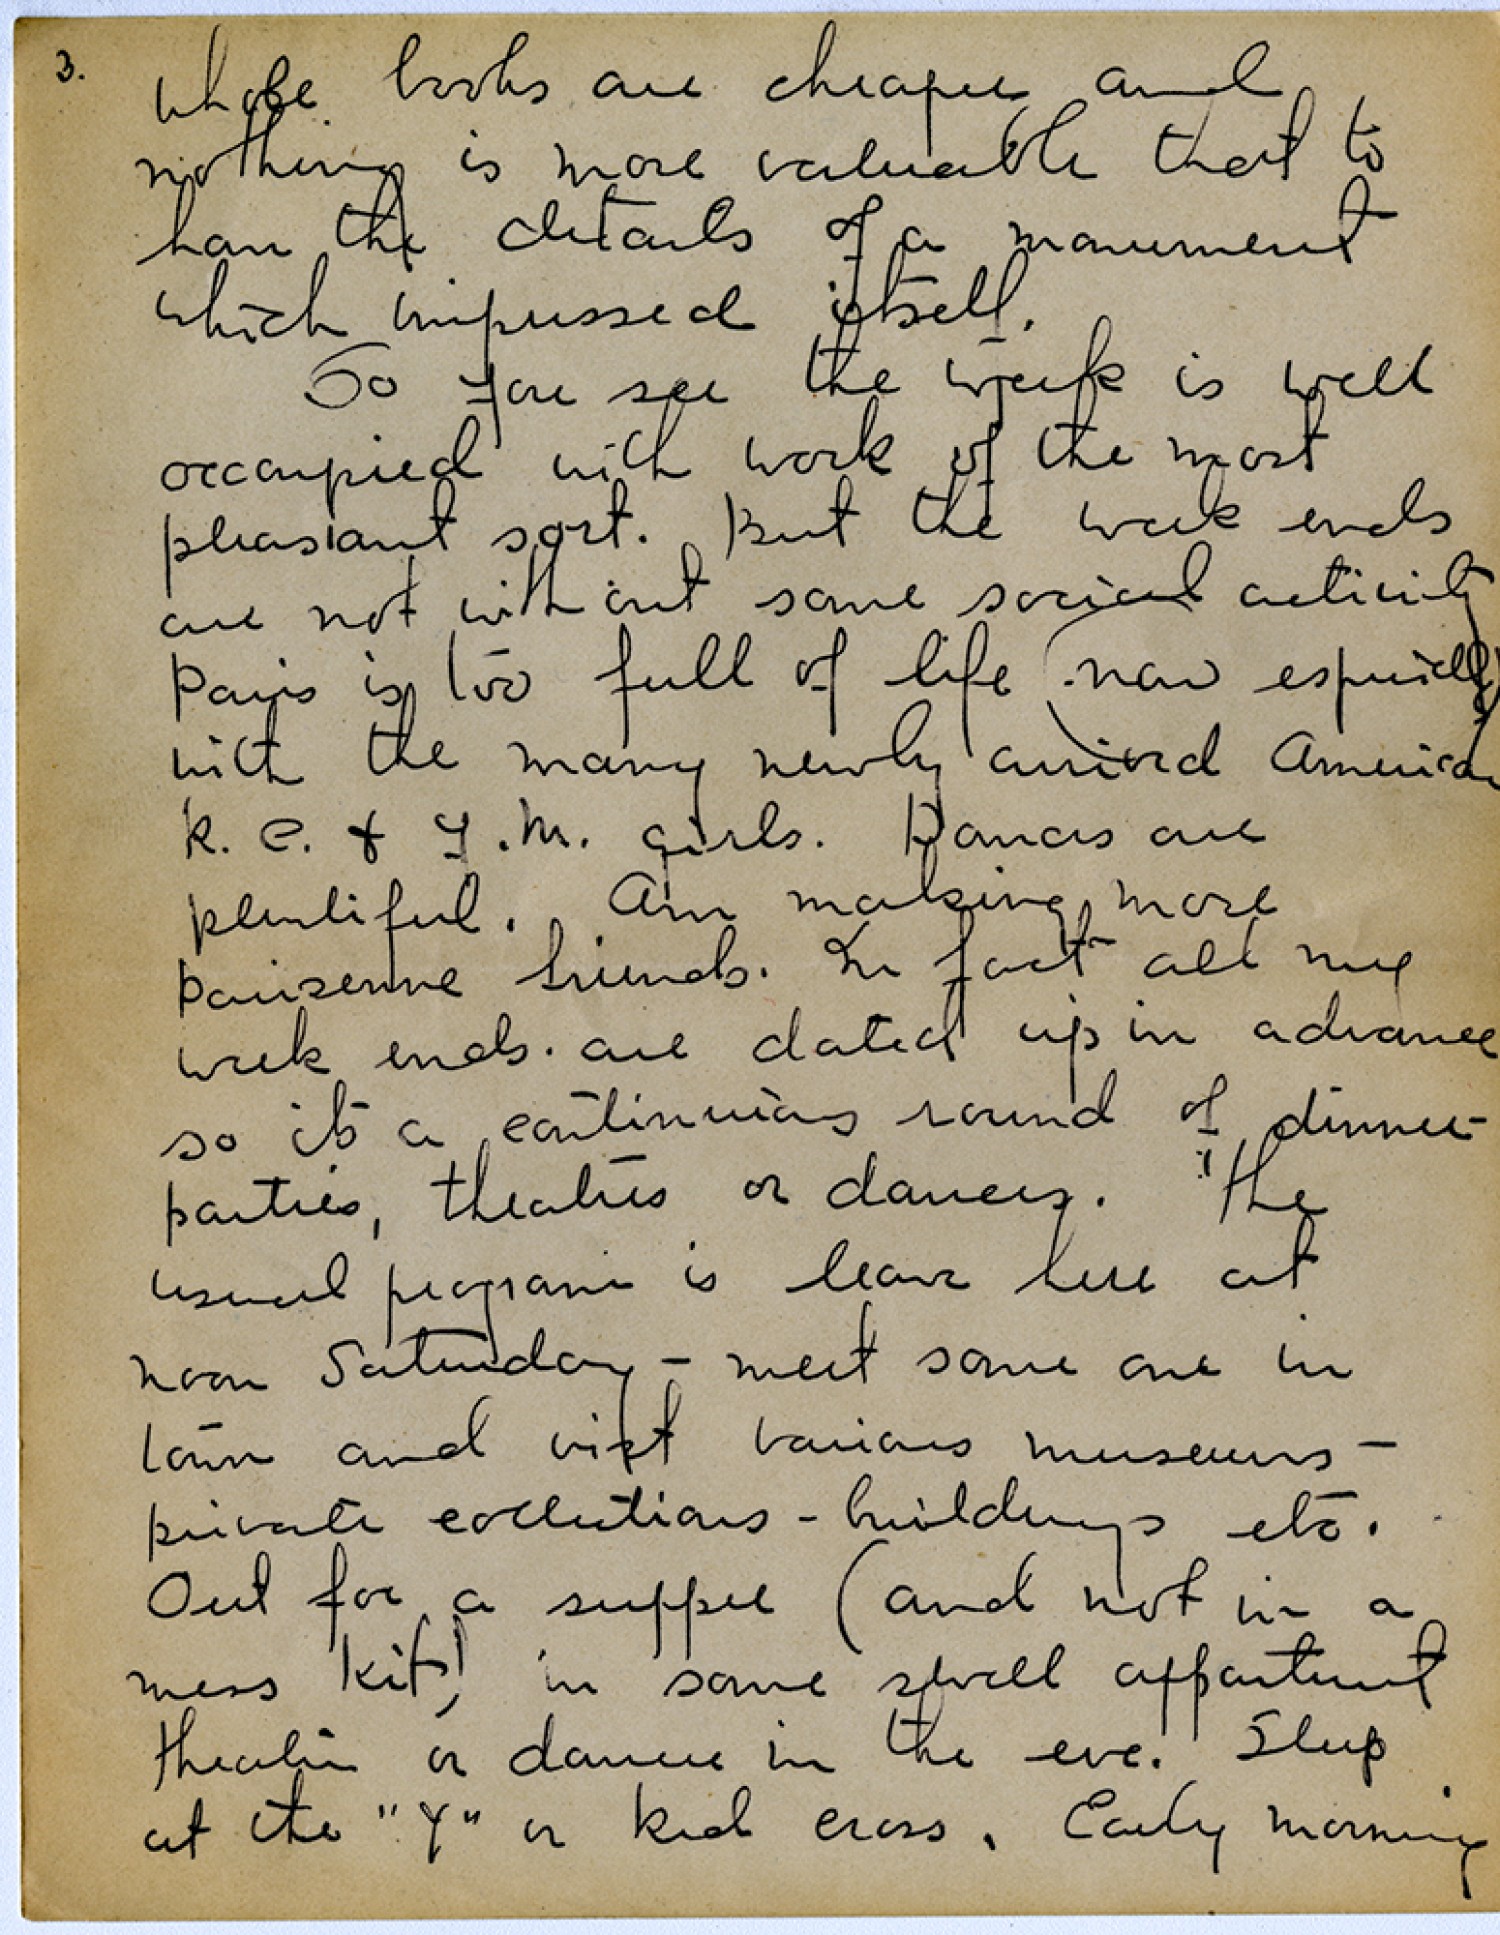 3.
whole books are cheaper and
nothing is more valuable that to
have the details of a monument
which impressed itself.
So you see the week is well
occupied with work of the most
pleasant sort. But the week ends
are not without some social activity
Paris is too full of life (now especially)
with the many newly arrived American
R. C. & Y.M. girls. Dances are
plentiful. Am making more
parisenne friends. In fact all my
week ends are dated up in advance
so its a continuous round of dinner
parties, theatres or dances. The
usual program is leave here at
noon Saturday – meet some one in
town and visit various museums –
private collections – buildings etc.
Out for a supper (and not in a
mess kit) in some swell appartment
theatre or dance in the eve. Sleep
at the "Y" or Red Cross. Early morning